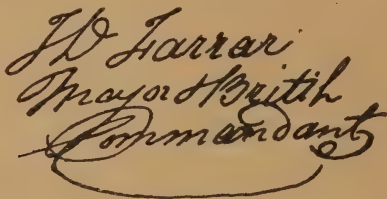 JD Farrar
Mayor & Britih
Commandant